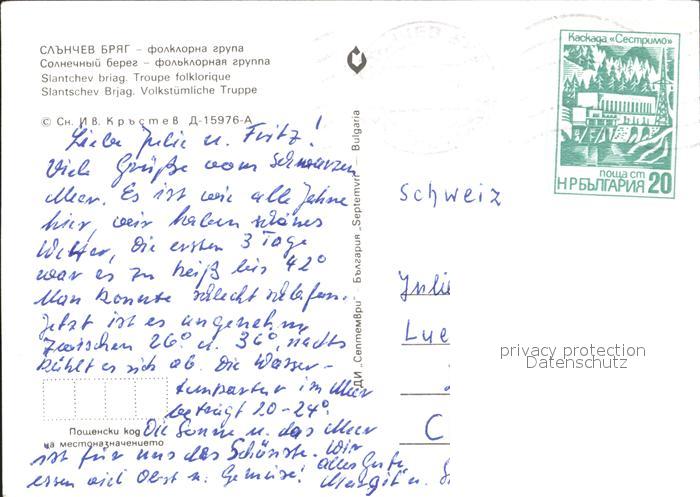 СЛЪНЧЕВ БРЯГ – фолклорна група
Солнечный берег – фольклорная группа
Slantchev briag. Troupe folklorique
Slantschev Brjag. Volkstümliche Truppe
© Сн. Ив. Кръстев Д-15976-А
Liebe Julie u. Fritz!
Viele Grüße vom Schwarzen
Meer. Es ist wie alle Jahre
hier, wir haben schönes
Wetter, die ersten 3 Tage
war es zu heiß bis 42°
Man konnte schlecht schlafen.
Jetzt ist es angenehm
zwischen 26° u. 36°, nachts
kühlt es sich ab. Die Wasser-
temperatur im Meer
beträgt 20-24°.
Die Sonne u. das Meer
ist für uns das Schönste. Wir
essen viel Obst u. Gemüse!
Alles Gute
Margit u.
Пощенски код
на местоназначението
ДИ „Септември“ - България „Septemvri“ - Bulgaria
Каскада «Сестримо»
поща ст
НР БЪЛГАРИЯ 20
Schweiz
Julie
Lue
C
privacy protection
Datenschutz